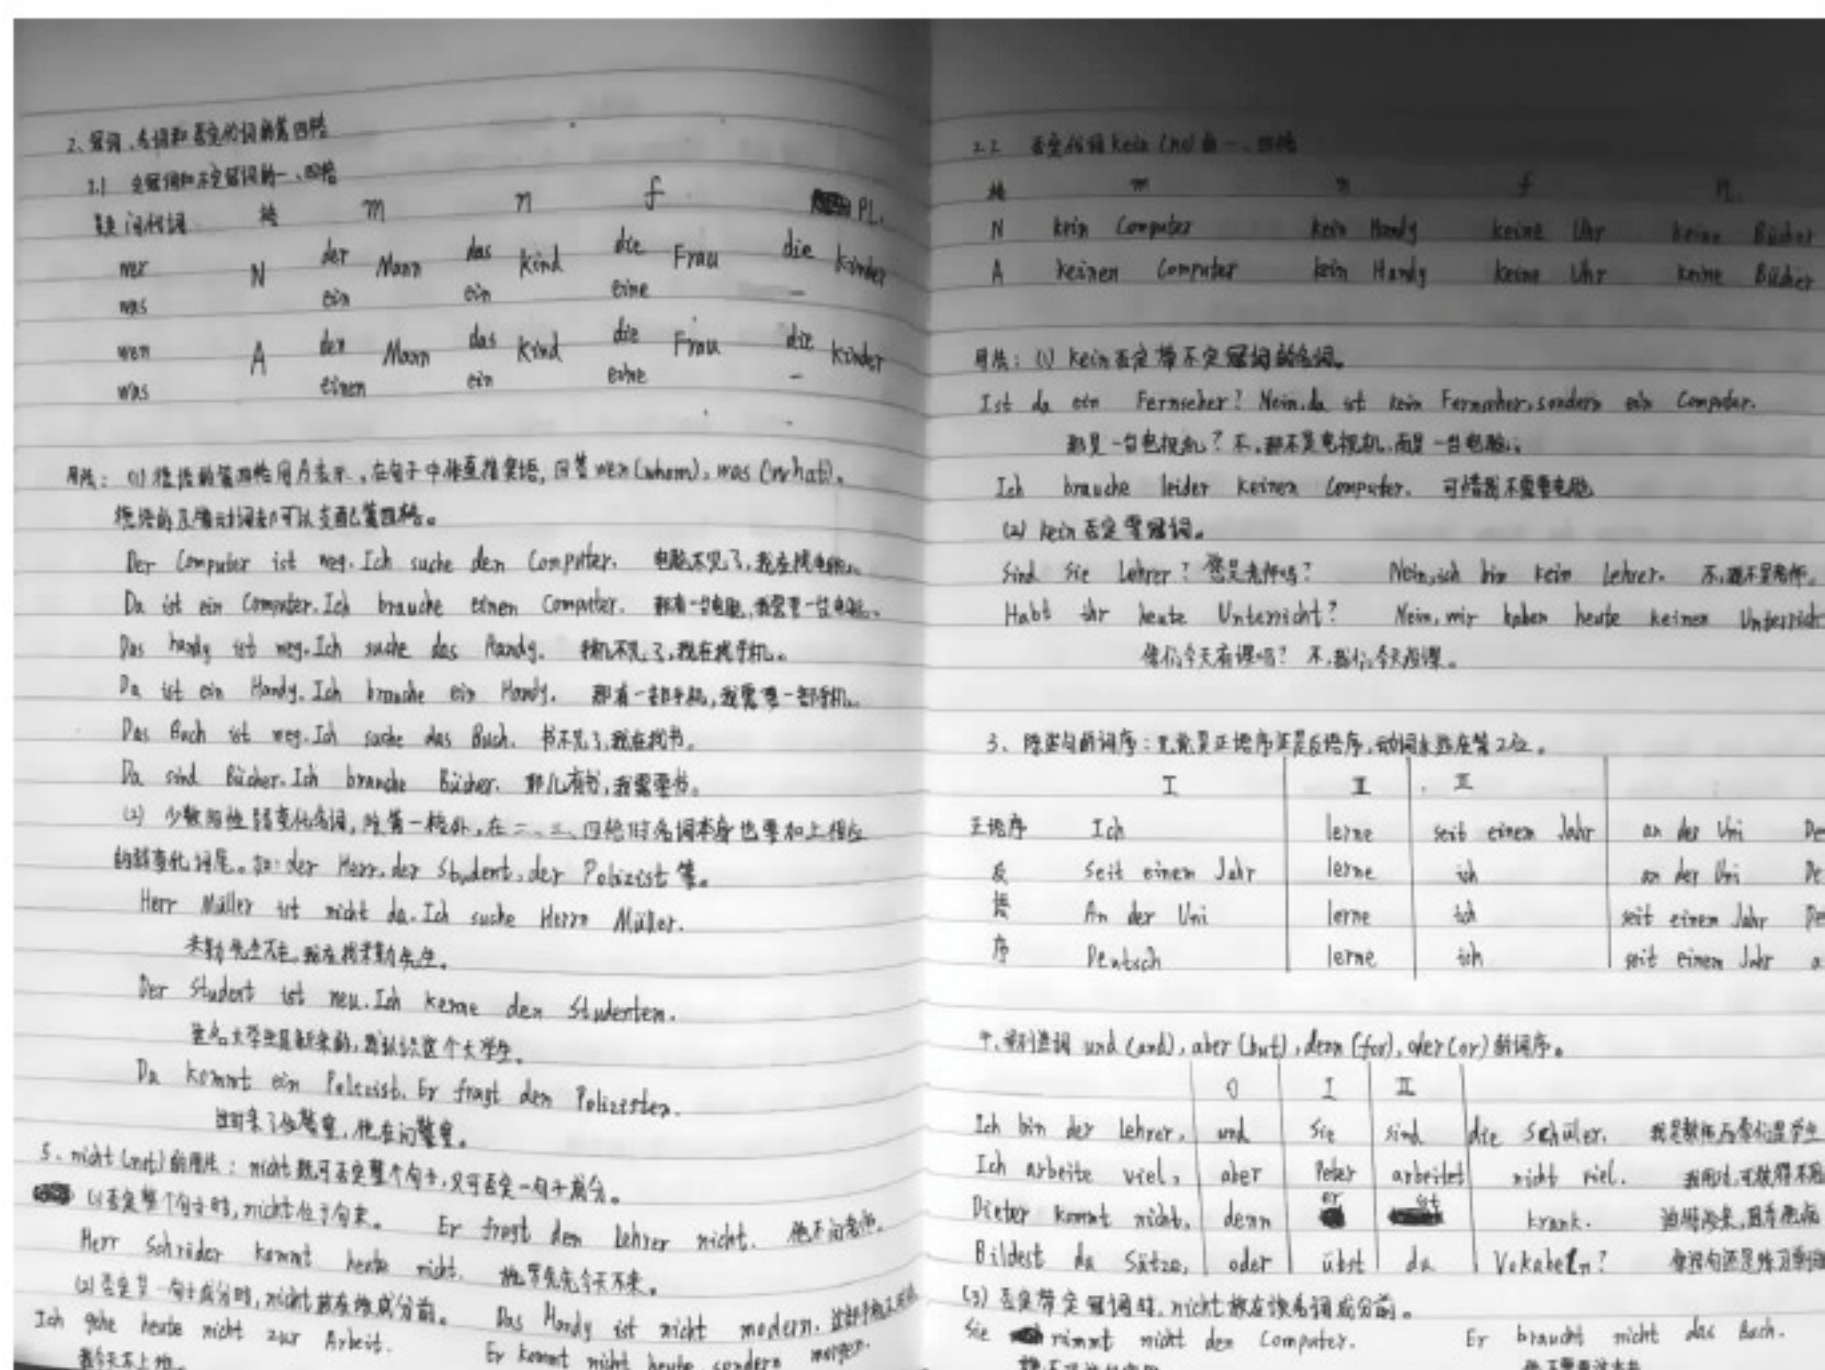 2、冠词、名词和否定代词的第四格
2.1 定冠词和不定冠词的一、四格
疑问代词 格 m n f PL.
wer der das die die
N Mann Kind Frau Kinder
was ein ein eine —
wen den das die die
A Mann Kind Frau Kinder
was einen ein eine —
用法: (1) 德语的第四格用A表示,在句子中作直接宾语,回答wen (whom), was (what)。
德语的及物动词都可以支配第四格。
Der Computer ist weg. Ich suche den Computer. 电脑不见了,我在找电脑。
Da ist ein Computer. Ich brauche einen Computer. 那有一台电脑,我需要一台电脑。
Das Handy ist weg. Ich suche das Handy. 手机不见了,我在找手机。
Da ist ein Handy. Ich brauche ein Handy. 那有一部手机,我需要一部手机。
Das Buch ist weg. Ich suche das Buch. 书不见了,我在找书。
Da sind Bücher. Ich brauche Bücher. 那儿有书,我需要书。
(2) 少数阳性弱变化名词,除第一格外,在二、三、四格时名词本身也要加上相应
的弱变化词尾。如: der Herr, der Student, der Polizist 等。
Herr Müller ist nicht da. Ich suche Herrn Müller.
米勒先生不在,我在找米勒先生。
Der Student ist neu. Ich kenne den Studenten.
这名大学生是新来的,我认识这个大学生。
Da kommt ein Polizist. Er fragt den Polizisten.
这时来了位警察,他在问警察。
5、nicht (not) 的用法: nicht 既可否定整个句子,又可否定一句子成分。
(1) 否定整个句子时, nicht 位于句末。 Er fragt den Lehrer nicht. 他不问老师。
Herr Schröder kommt heute nicht. 先生今天不来。
(2) 否定某一句子成分时, nicht 放在该成分前。 Das Handy ist nicht modern.
Ich gehe heute nicht zur Arbeit. Er kommt nicht heute, sondern morgen.
我今天不上班。
2.2 否定代词 kein (no) 的一、四格
格 m n f PL.
N kein Computer kein Handy keine Uhr keine Bücher
A keinen Computer kein Handy keine Uhr keine Bücher
用法: (1) kein 否定带不定冠词的名词。
Ist da ein Fernseher? Nein, da ist kein Fernseher, sondern ein Computer.
那是一台电视机? 不,那不是电视机,而是一台电脑。
Ich brauche leider keinen Computer. 可惜我不需要电脑
(2) kein 否定零冠词。
Sind Sie Lehrer? 您是老师吗? Nein, ich bin kein Lehrer. 不,我不是老师。
Habt ihr heute Unterricht? Nein, wir haben heute keinen Unterricht
你们今天有课吗? 不,我们今天没课。
3、陈述句的词序: 无论是正语序还是反语序,动词永远在第2位。
I II III
正语序 Ich lerne seit einem Jahr an der Uni De
反 Seit einem Jahr lerne ich an der Uni De
语 An der Uni lerne ich seit einem Jahr De
序 Deutsch lerne ich seit einem Jahr a
4、并列连词 und (and), aber (but), denn (for), oder (or) 的词序。
0 I II
Ich bin der Lehrer, und Sie sind die Schüler. 我是教师而你们是学生
Ich arbeite viel, aber Peter arbeitet nicht viel.
Dieter kommt nicht, denn er ist krank.
Bildest du Sätze, oder übst du Vokabeln?
(3) 否定带定冠词时, nicht 放在该名词成分前。
Sie nimmt nicht den Computer. Er braucht nicht das Buch.